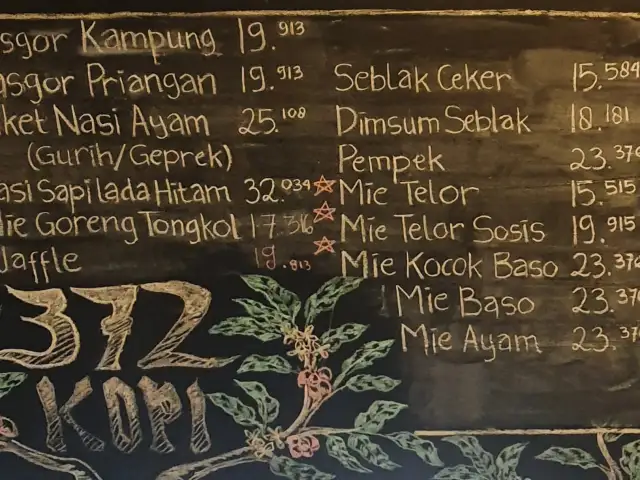 sgor Kampung 19.913
asgor Priangan 19.913
ket Nasi Ayam 25.108
(Gurih/Geprek)
asi Sapi lada Hitam 32.034
ie Goreng Tongkol 17.316
Jaffle 19.913
372
KOPI
Seblak Ceker 15.584
Dimsum Seblak 18.181
Pempek 23.376
Mie Telor 15.515
Mie Telor Sosis 19.915
Mie Kocok Baso 23.376
Mie Baso 23.37
Mie Ayam 23.37